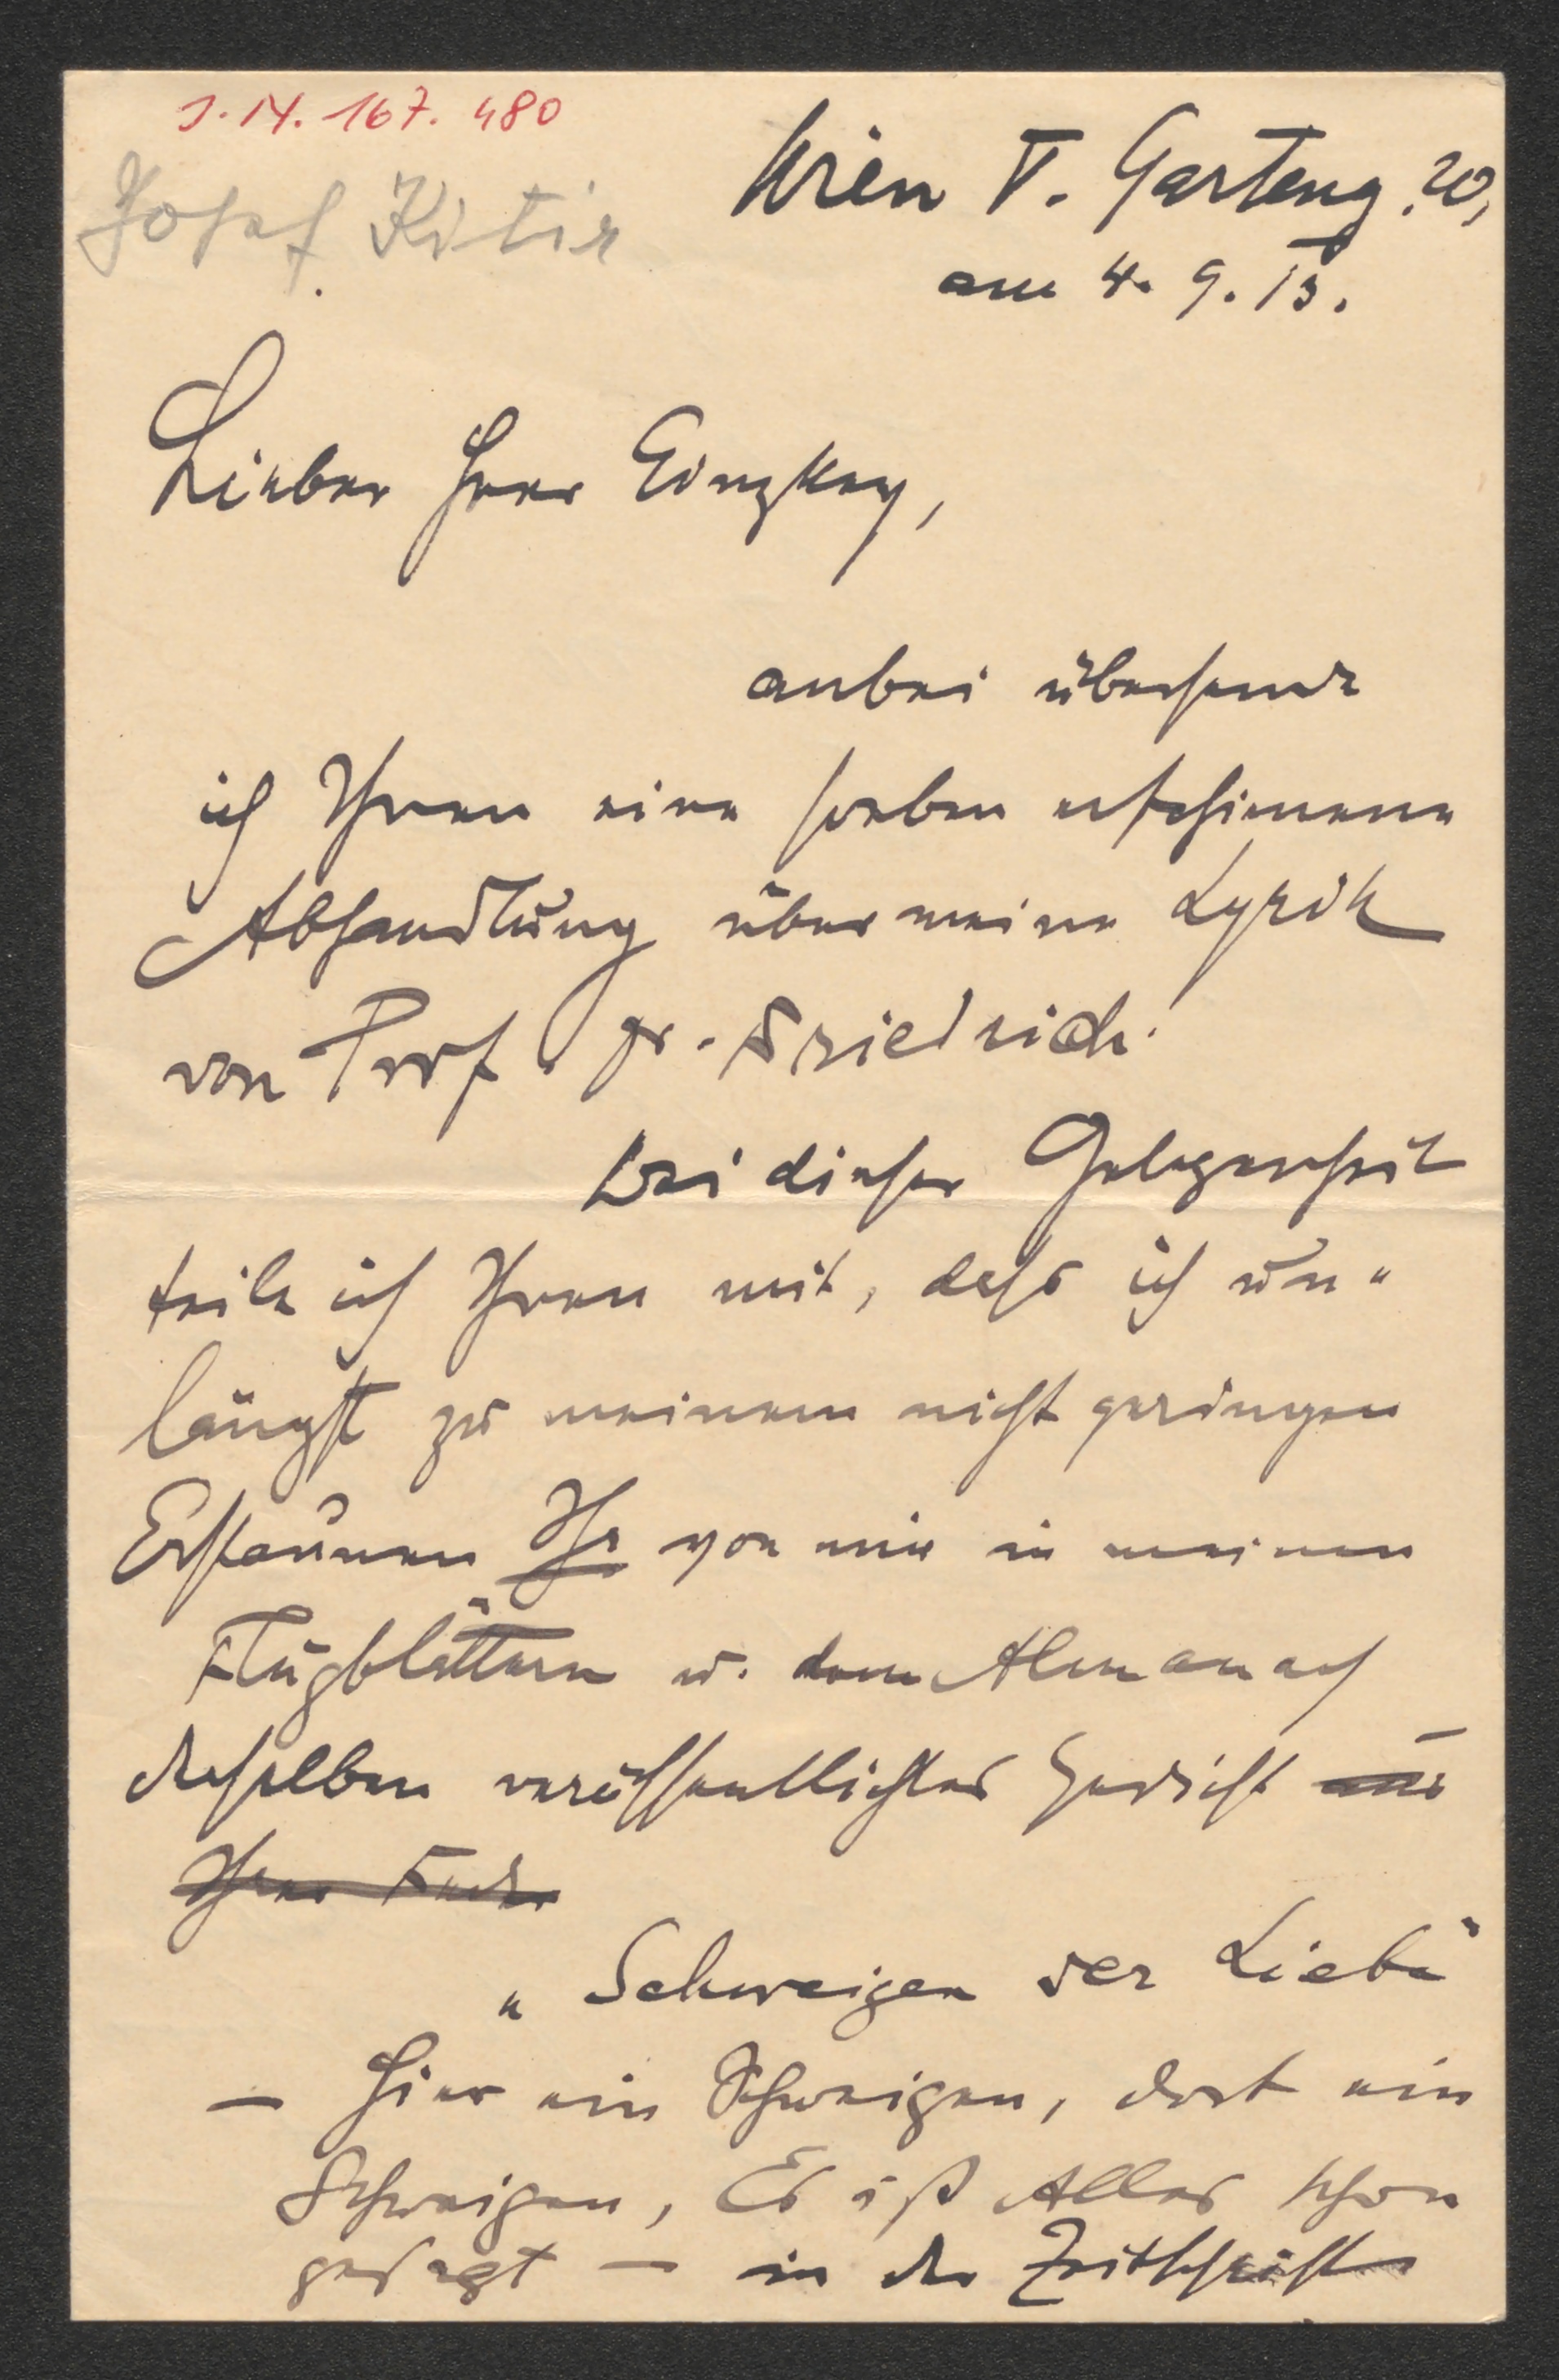 J.N. 167.480
Josef Kitir
Wien V. Garteng. 20,
am 4. 9. 13.
Lieber Herr Ginzkey,
anbei übersende
ich Ihnen eine soeben erschienene
Abhandlung über meine Lyrik
von Prof. Fr. Friedrich.
Bei dieser Gelegenheit
teile ich Ihnen mit, dass ich un-
längst zu meinem nicht geringen
Erstaunen Ihr von mir in meinen
Flugblättern u. dem Almanach
desselben veröffentlichtes Gedicht aus
Ihrer Feder
„Schweigen der Liebe"
– Hier ein Schweigen, dort ein
Schweigen, Es ist Alles schon
gesagt – in der Zeitschrift